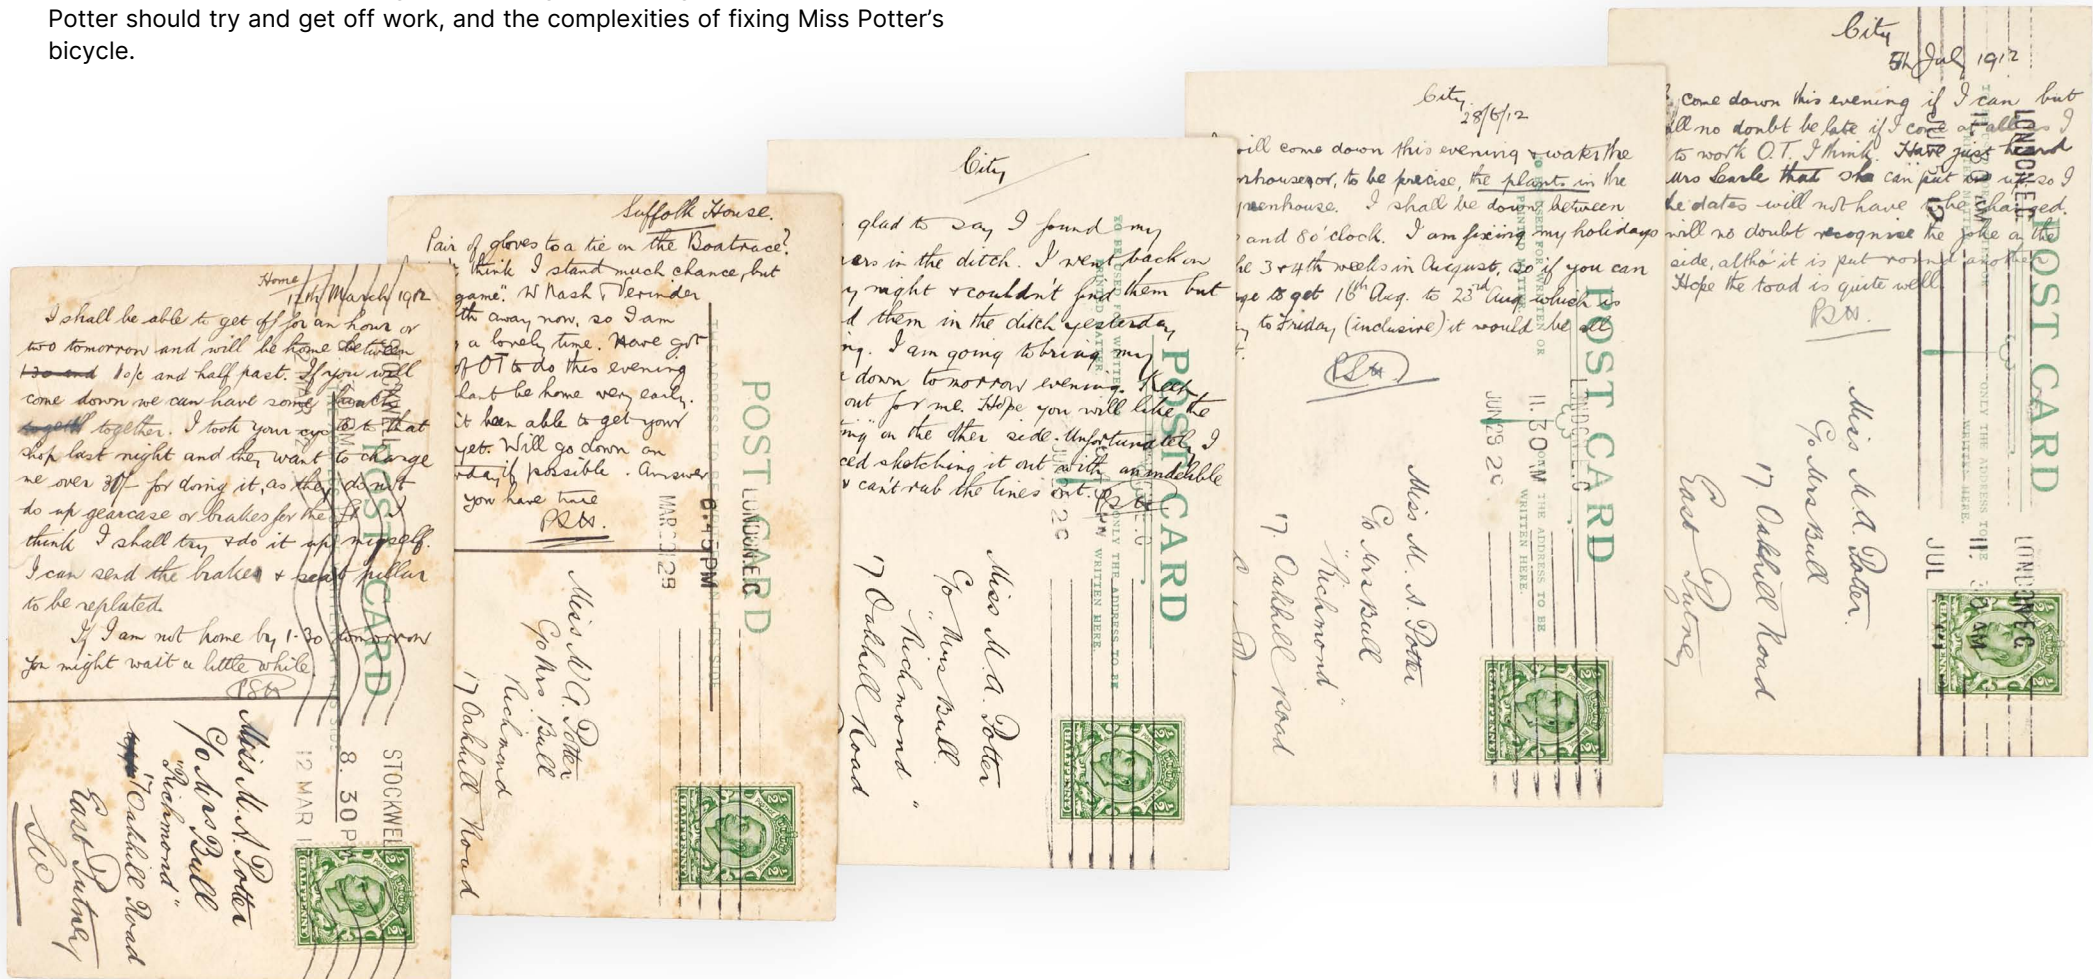 Potter should try and get off work, and the complexities of fixing Miss Potter’s
bicycle.
Home
12th March 1912
I shall be able to get off for an hour or
two tomorrow and will be home between
1 o/c and half past. If you will
come down we can have some
together. I took your cycle to that
shop last night and they want to charge
me over 30/- for doing it, as they do not
do up gearcase or brakes for the
think I shall try & do it up myself.
I can send the brakes & seat pillar
to be replated.
If I am not home by 1-30 tomorrow
you might wait a little while.
PSH
POST CARD
STOCKWELL
8. 30 PM
12 MAR
Miss M. A. Potter
C/o Mrs Bull
"Richmond"
17 Oakhill Road
East Putney
Suffolk House.
Pair of gloves to a tie on the Boatrace?
think I stand much chance, but
game". W Nash & Perinder
th away now, so I am
a lovely time. Have got
of OT to do this evening
lant be home very early.
't been able to get your
yet. Will go down on
day if possible. Answer
you have time
PSH.
POST CARD
LONDON.E.C
6.45 PM
MAR
29
Miss M A. Potter
C/o Mrs. Bull
Richmond
17 Oakhill Road
City
glad to say I found my
ers in the ditch. I went back on
y night & couldn't find them but
d them in the ditch yesterday
ng. I am going to bring my
down tomorrow evening. Keep
out for me. Hope you will like the
ing" on the other side. Unfortunately I
ced sketching it out with an indelible
& can't rub the lines out. PSH
POST CARD
ONLY THE ADDRESS TO BE
WRITTEN HERE.
Miss M. A. Potter
C/o Mrs Bull.
"Richmond"
17 Oakhill Road
HALFPENNY
City
28/6/12
will come down this evening & water the
nhouse, or, to be precise, the plants in the
greenhouse. I shall be down between
and 8 o'clock. I am fixing my holidays
he 3 & 4th weeks in August, so if you can
ge to get 16th Aug. to 23rd Aug which is
y to Friday (inclusive) it would be all
PSH.
POST CARD
LONDON.E.C
11. 30 AM
JUN 29
THE ADDRESS TO BE
WRITTEN HERE.
Miss M. A. Potter
C/o Mrs Bull
"Richmond"
17 Oakhill Road
City
5th July 1912
come down this evening if I can but
all no doubt be late if I come at all as I
to work O.T. I think. Have just heard
Mrs Searle that she can put us up so I
he dates will not have to be changed.
will no doubt recognise the joke on the
side, altho' it is put round another
Hope the toad is quite well.
PSH.
POST CARD
ONLY THE ADDRESS TO BE
WRITTEN HERE.
LONDON.E.C
JUL
Miss M. A. Potter.
C/o Mrs Bull
17 Oakhill Road
East Putney